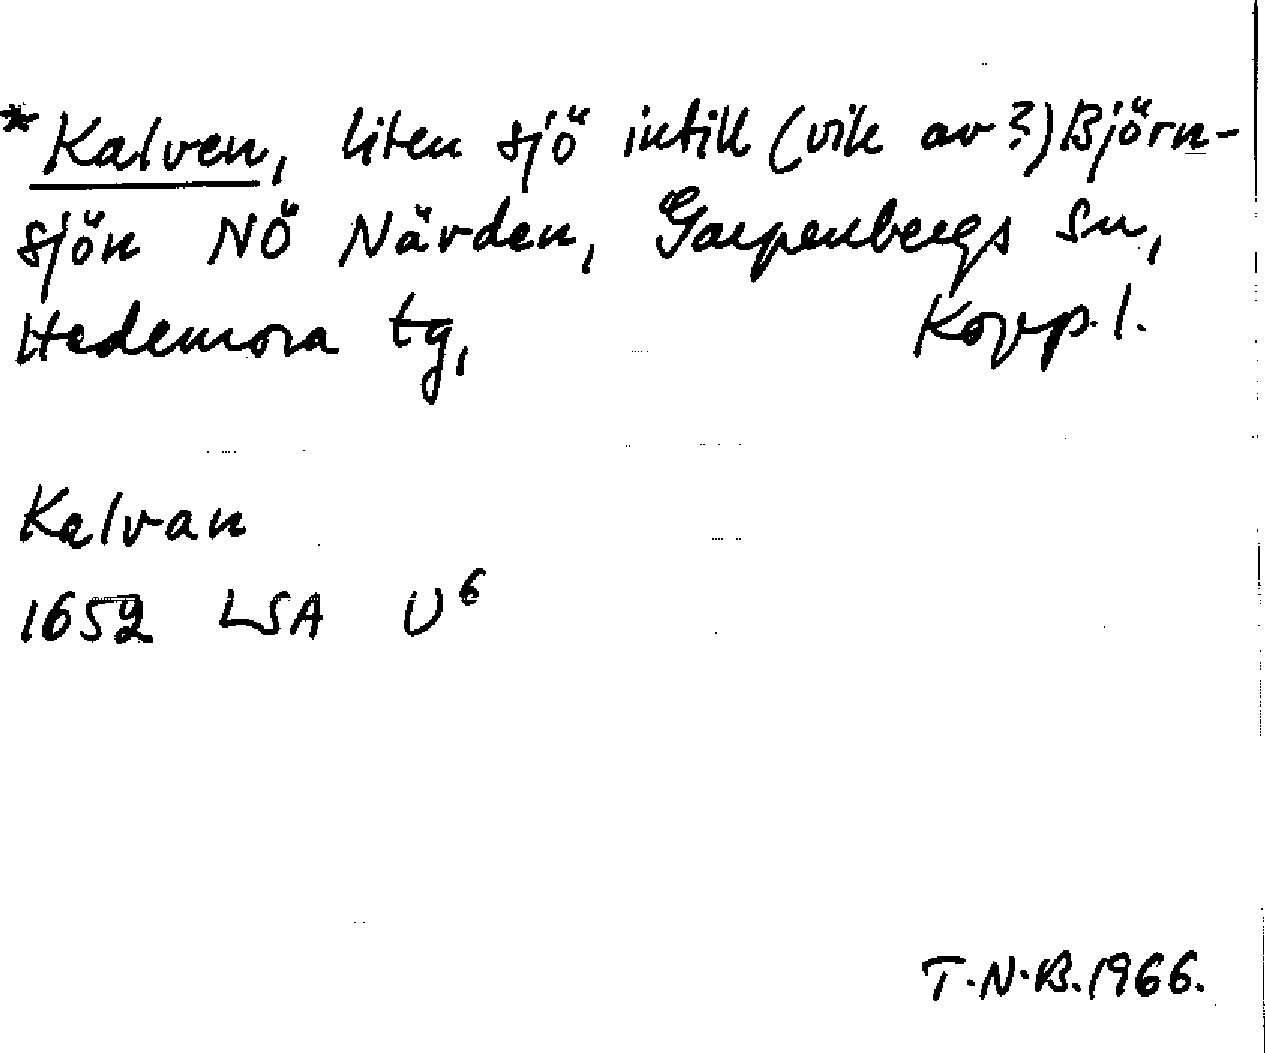 *Kalven, liten sjö intill (vik av?) Björn-
sjön NÖ Närden, Garpenbergs sn,
Hedemora tg, Kopp. l.
Kalvan
1652 LSA U⁶
T.N.B. 1966.